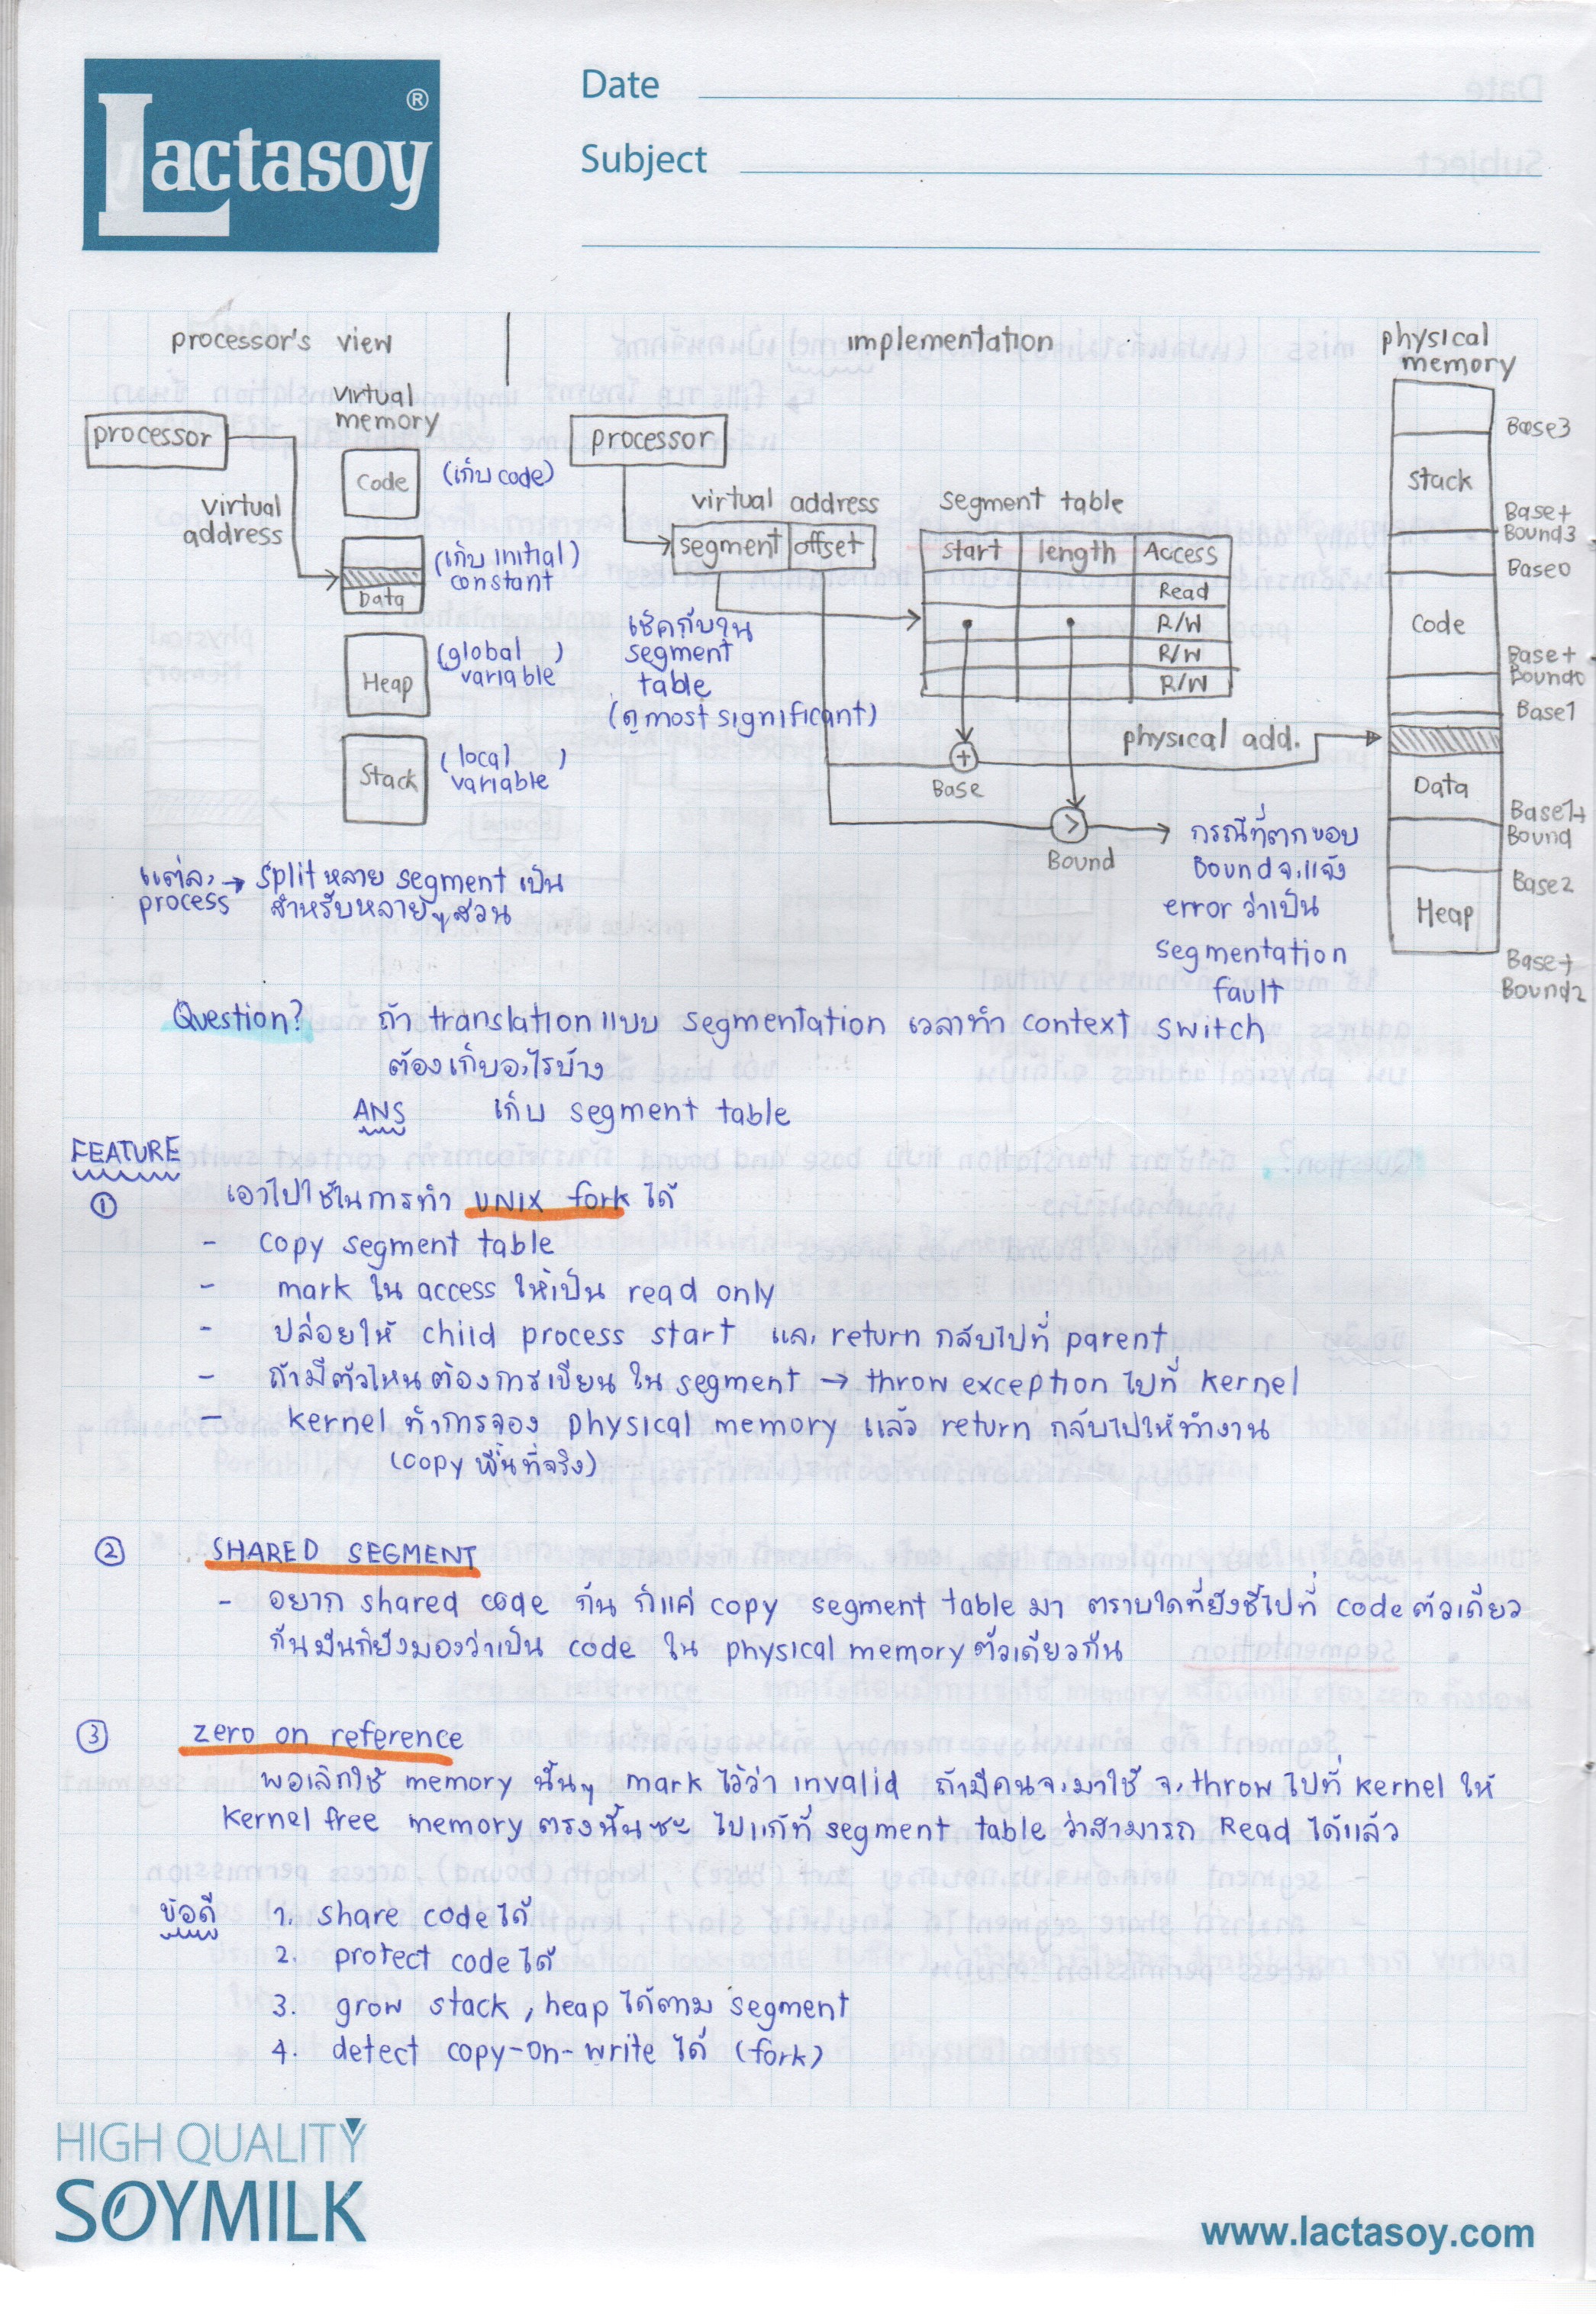 Lactasoy ®
Date
Subject
processor's view
implementation
physical
memory
virtual
memory
processor
virtual
address
Code
(เก็บ code)
(เก็บ initial)
constant
Data
Heap
(global)
variable
Stack
(local)
variable
แต่ละ → split หลาย segment เป็น
process สำหรับหลายๆ ส่วน
processor
virtual address
segment offset
เช็คกับใน
segment
table
(ดู most significant)
segment table
start length Access
Read
R/W
R/W
R/W
+
Base
physical add.
>
Bound
กรณีที่ตกขอบ
Bound จะแจ้ง
error ว่าเป็น
segmentation
fault
Base3
Stack
Base+
Bound3
Base0
Code
Base+
Bound0
Base1
Data
Base1+
Bound
Base2
Heap
Base+
Bound2
Question? ถ้า translation แบบ segmentation เวลาทำ context switch
ต้องเก็บอะไรบ้าง
ANS เก็บ segment table
FEATURE
① เอาไปใช้ในการทำ UNIX fork ได้
- copy segment table
- mark ใน access ให้เป็น read only
- ปล่อยให้ child process start และ return กลับไปที่ parent
- ถ้ามีตัวไหนต้องการเขียน ใน segment → throw exception ไปที่ kernel
- kernel ทำการจอง physical memory แล้ว return กลับไปให้ทำงาน
(copy พื้นที่จริง)
② SHARED SEGMENT
- อยาก shared code กัน ก็แค่ copy segment table มา ตราบใดที่ยังชี้ไปที่ code ตัวเดียว
กันมันก็ยังมองว่าเป็น code ใน physical memory ตัวเดียวกัน
③ zero on reference
พอเลิกใช้ memory นั้นๆ mark ไว้ว่า invalid ถ้ามีคนจะมาใช้ จะ throw ไปที่ kernel ให้
kernel free memory ตรงนั้นซะ ไปแก้ที่ segment table ว่าสามารถ Read ได้แล้ว
ข้อดี 1. share code ได้
2. protect code ได้
3. grow stack, heap ได้ตาม segment
4. detect copy-on-write ได้ (fork)
HIGH QUALITY
SOYMILK
www.lactasoy.com